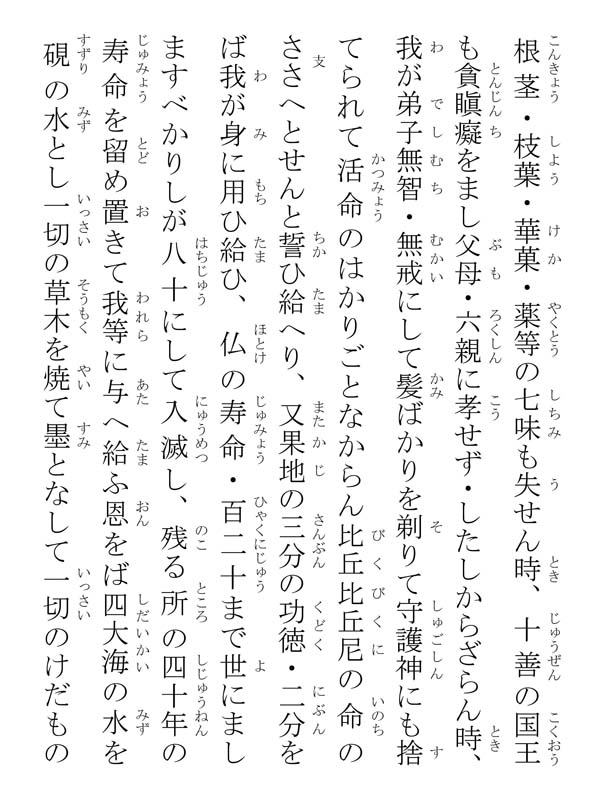 根茎・枝葉・華菓・薬等の七味も失せん時、十善の国王
も貪瞋癡をまし父母・六親に孝せず・したしからざらん時、
我が弟子無智・無戒にして髪ばかりを剃りて守護神にも捨
てられて活命のはかりごとなからん比丘比丘尼の命の
ささへとせんと誓ひ給へり、又果地の三分の功徳・二分を
ば我が身に用ひ給ひ、仏の寿命・百二十まで世にまし
ますべかりしが八十にして入滅し、残る所の四十年の
寿命を留め置きて我等に与へ給ふ恩をば四大海の水を
硯の水とし一切の草木を焼て墨となして一切のけだもの